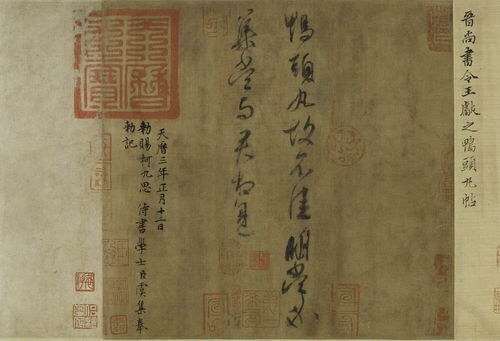 晉尚書令王獻之鴨頭丸帖
鴨頭丸故不佳明當必
集當與君相見
天曆三年正月十二日
勅賜柯九思侍書學士臣虞集奉
勅記
天曆之寶